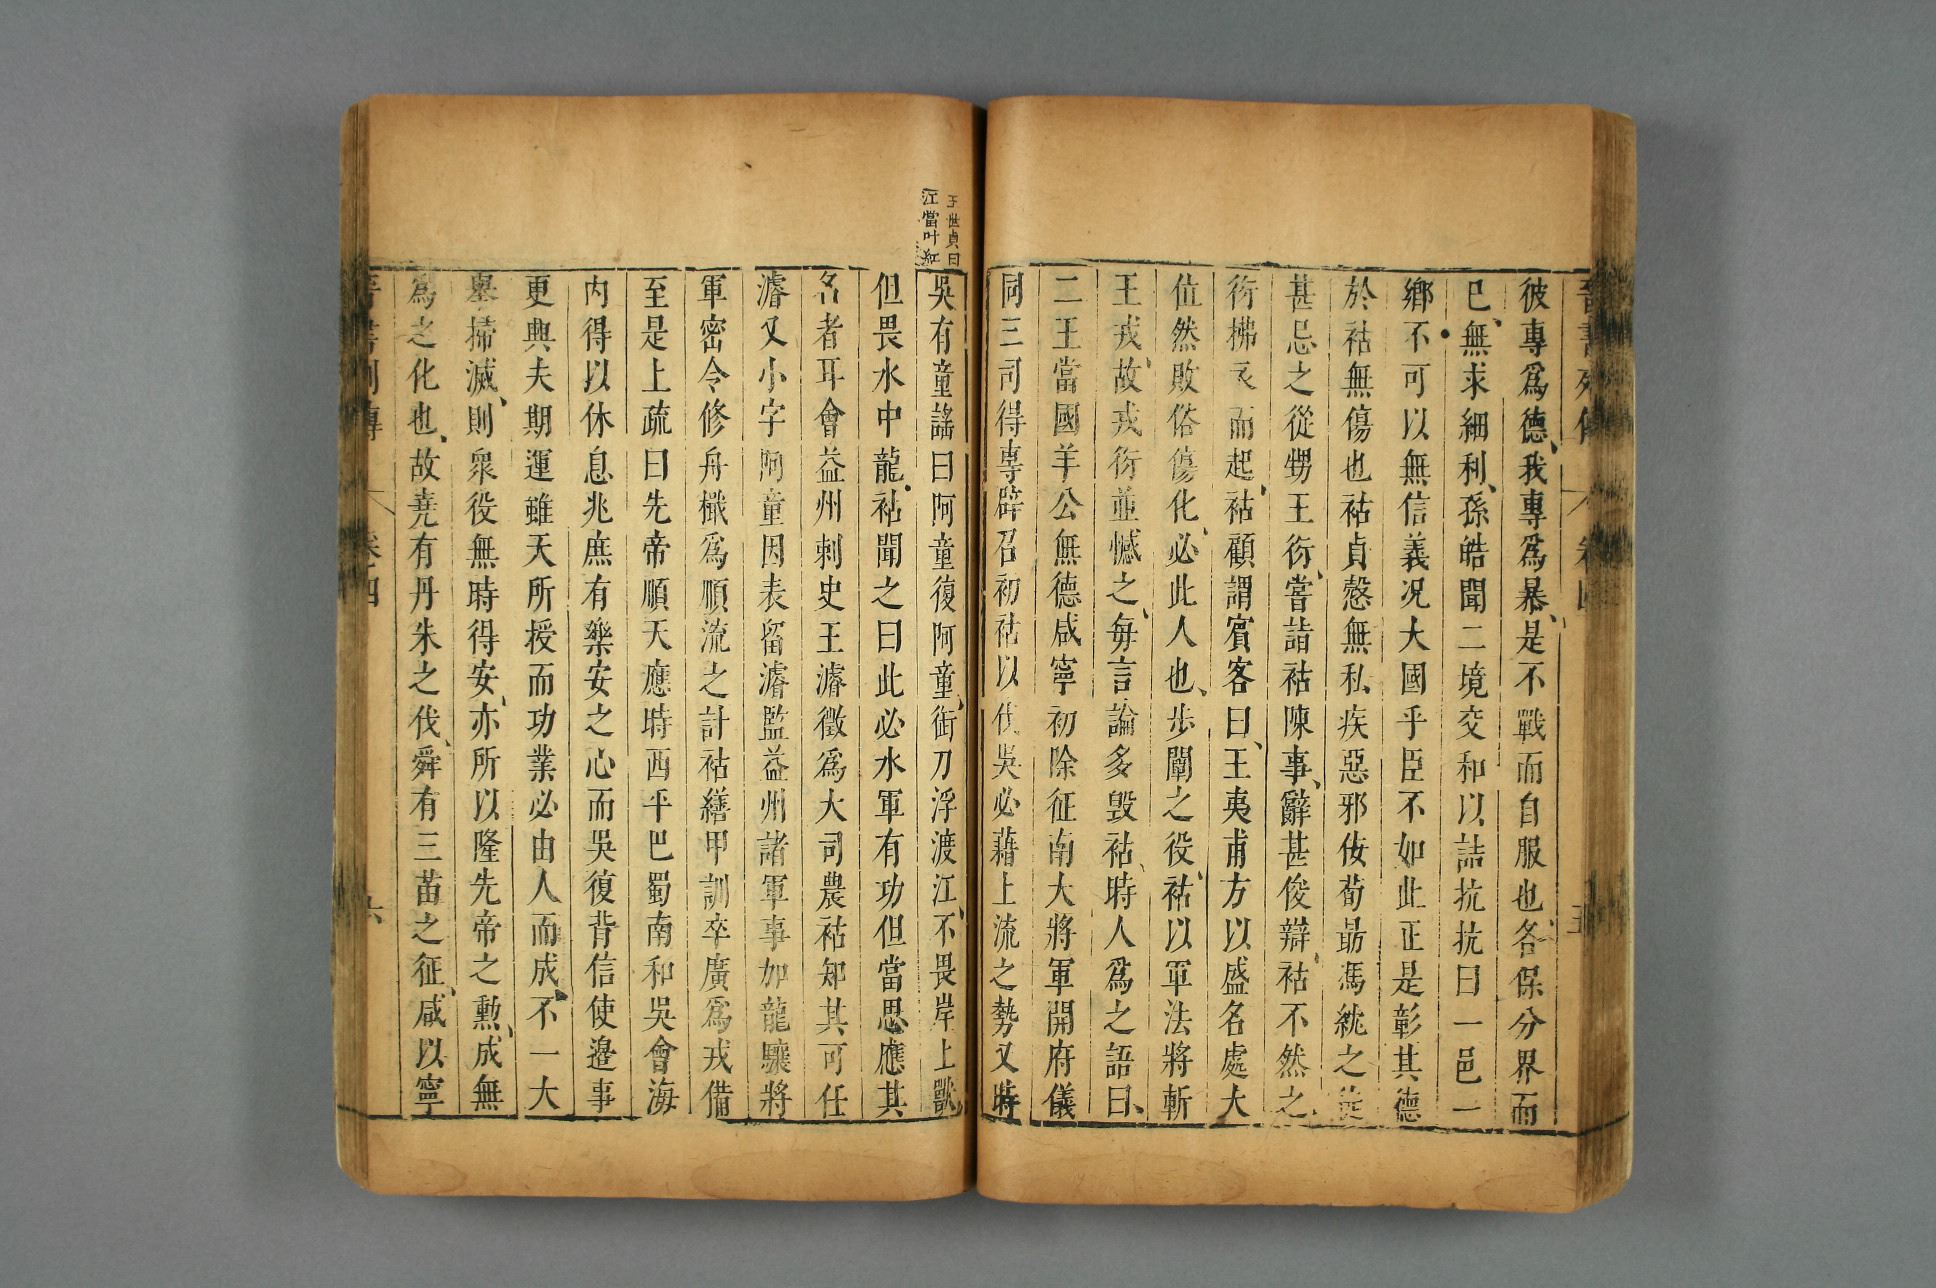 彼專爲德我專爲暴是不戰而自服也各保分界而
已無求細利孫皓聞二境交和以詰抗抗曰一邑一
鄉不可以無信義况大國乎臣不如此正是彰其德
於祜無傷也祜貞慤無私疾惡邪佞荀勗馮紞之徒
甚忌之從甥王衍嘗詣祜陳事辭甚俊辯祜不然之
衍拂衣而起祜顧謂賓客曰王夷甫方以盛名處大
位然敗俗傷化必此人也步闡之役祜以軍法將斬
王戎故戎衍並憾之每言論多毀祜時人爲之語曰
二王當國羊公無德咸寧初除征南大將軍開府儀
同三司得專辟召初祜以伐吳必藉上流之勢又時
王世貞曰
江當叶紅
吳有童謠曰阿童復阿童銜刀浮渡江不畏岸上獸
但畏水中龍祜聞之曰此必水軍有功但當思應其
名者耳會益州刺史王濬徵爲大司農祜知其可任
濬又小字阿童因表留濬監益州諸軍事加龍驤將
軍密令修舟檝爲順流之計祜繕甲訓卒廣爲戎備
至是上疏曰先帝順天應時西平巴蜀南和吳會海
內得以休息兆庶有樂安之心而吳復背信使邊事
更興夫期運雖天所授而功業必由人而成不一大
舉掃滅則衆役無時得安亦所以隆先帝之勲成無
爲之化也故堯有丹朱之伐舜有三苗之征咸以寧
晉書列傳 卷四 六